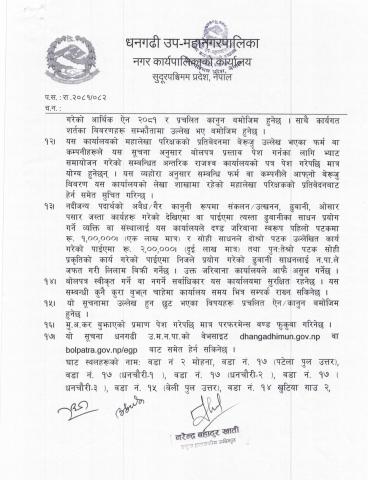 धनगढी उप-महानगरपालिका
नगर कार्यपालिकाको कार्यालय
सुदूरपश्चिम प्रदेश, नेपाल
प.स: रा.२०८१/०८२
च.न :
गरेको आर्थिक ऐन २०८१ र प्रचलित कानून बमोजिम हुनेछ । साथै कार्यगत
शर्तका विवरणहरू सम्झौतामा उल्लेख भए बमोजिम हुनेछ ।
१२) यस कार्यालयको महालेखा परिक्षकको प्रतिवेदनमा बेरूजु उल्लेख भएका फर्म वा
कम्पनीहरूले यस सूचना अनुसार बोलपत्र प्रस्ताव पेश गर्नका लागि भ्याट
समायोजन गरेको सम्बन्धित अन्तरिक राजश्व कार्यालयको पत्र पेश गरेपछि मात्र
योग्य हुनेछन् । यस व्यहोरा अनुसार सम्बन्धि फर्म वा कम्पनीले आफ्नो बेरूजु
विवरण यस कार्यालयको लेखा शाखामा रहेको महालेखा परिक्षकको प्रतिवेदनबाट
हेर्न समेत सुचित गरिन्छ ।
१३) नदीजन्य पदार्थको अवैध/गैर कानुनी रूपमा संकलन/उत्खनन, ढुवानी, ओसार
पसार जस्ता कार्यहरू गरेको देखिएमा वा पाईएमा त्यस्ता ढुवानीका साधन प्रयोग
गर्ने व्यक्ति वा संस्थालाई यस कार्यालयले दण्ड जरिवाना स्वरूप पहिलो पटकमा
रू. १,००,०००। (एक लाख मात्र) र सोही साधनले दोस्रो पटक उल्लेखित कार्य
गरेको पाईएमा रू. २,००,०००। (दुई लाख मात्र) तथा पुनःतेश्रो पटक सोही
प्रकृतिको कार्य गरेको पाईएमा निजले प्रयोग गरेको ढुवानी साधनलाई न.पा.ले
जफत गरी लिलाम बिक्री गर्नेछ । उक्त जरिवाना कार्यालयले आफै असुल गर्नेछ ।
१४) बोलपत्र स्वीकृत गर्ने वा नगर्ने सर्वाधिकार यस कार्यालयमा सुरक्षित रहनेछ । यस
सम्बन्धी कुनै कुरा बुझ्नु चाहेमा कार्यालय समय भित्र सम्पर्क राख्न सकिनेछ ।
१५) यो सूचनामा उल्लेख हुन छुट भएका विषयहरू प्रचलित ऐन/कानुन बमोजिम
हुनेछ ।
१६) मु.अ.कर बुझाएको प्रमाण पेश गरेपछि मात्र परफरमेन्स बण्ड फुकुवा गरिनेछ ।
१७) यो सूचना धनगढी उ.म.न.पा.को वेभसाइट dhangadhimun.gov.np वा
bolpatra.gov.np/egp बाट समेत हेर्न सकिनेछ ।
घाट स्थलहरूको नाम: वडा नं २ मोहना, वडा नं. १७ (पटेला पुल उत्तर),
वडा नं. १७ (धनचौरी-१ ), वडा नं. १७ (धनचौरी-२ ), वडा नं. १७ (
धनचौरी-३ ), वडा नं. १५ (बेली पुल उत्तर), वडा नं. १४ खुटिया गाउ २,
नरेन्द्र बहादुर खाती
प्रमुख प्रशासकीय अधिकृत